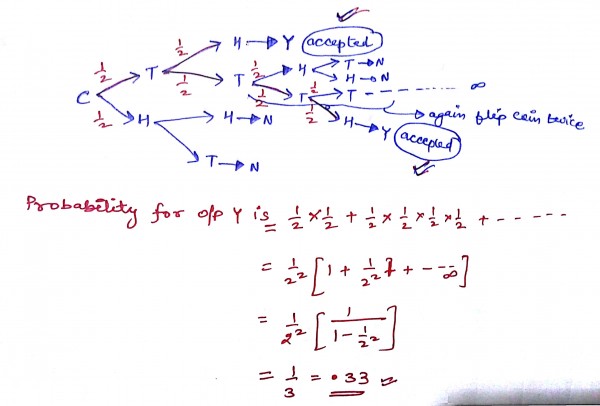 1/2 H → Y accepted
1/2 T 1/2 T 1/2 H → T → N
H → N
C 1/2 T 1/2 T - - - - - - - ∞
1/2 H H → N 1/2 H → Y accepted → again flip coin twice
T → N
Probability for o/p Y is = 1/2 × 1/2 + 1/2 × 1/2 × 1/2 × 1/2 + - - - - -
= 1/2² [1 + 1/2² + - - - ∞]
= 1/2² [1/(1 - 1/2²)]
= 1/3 = .33